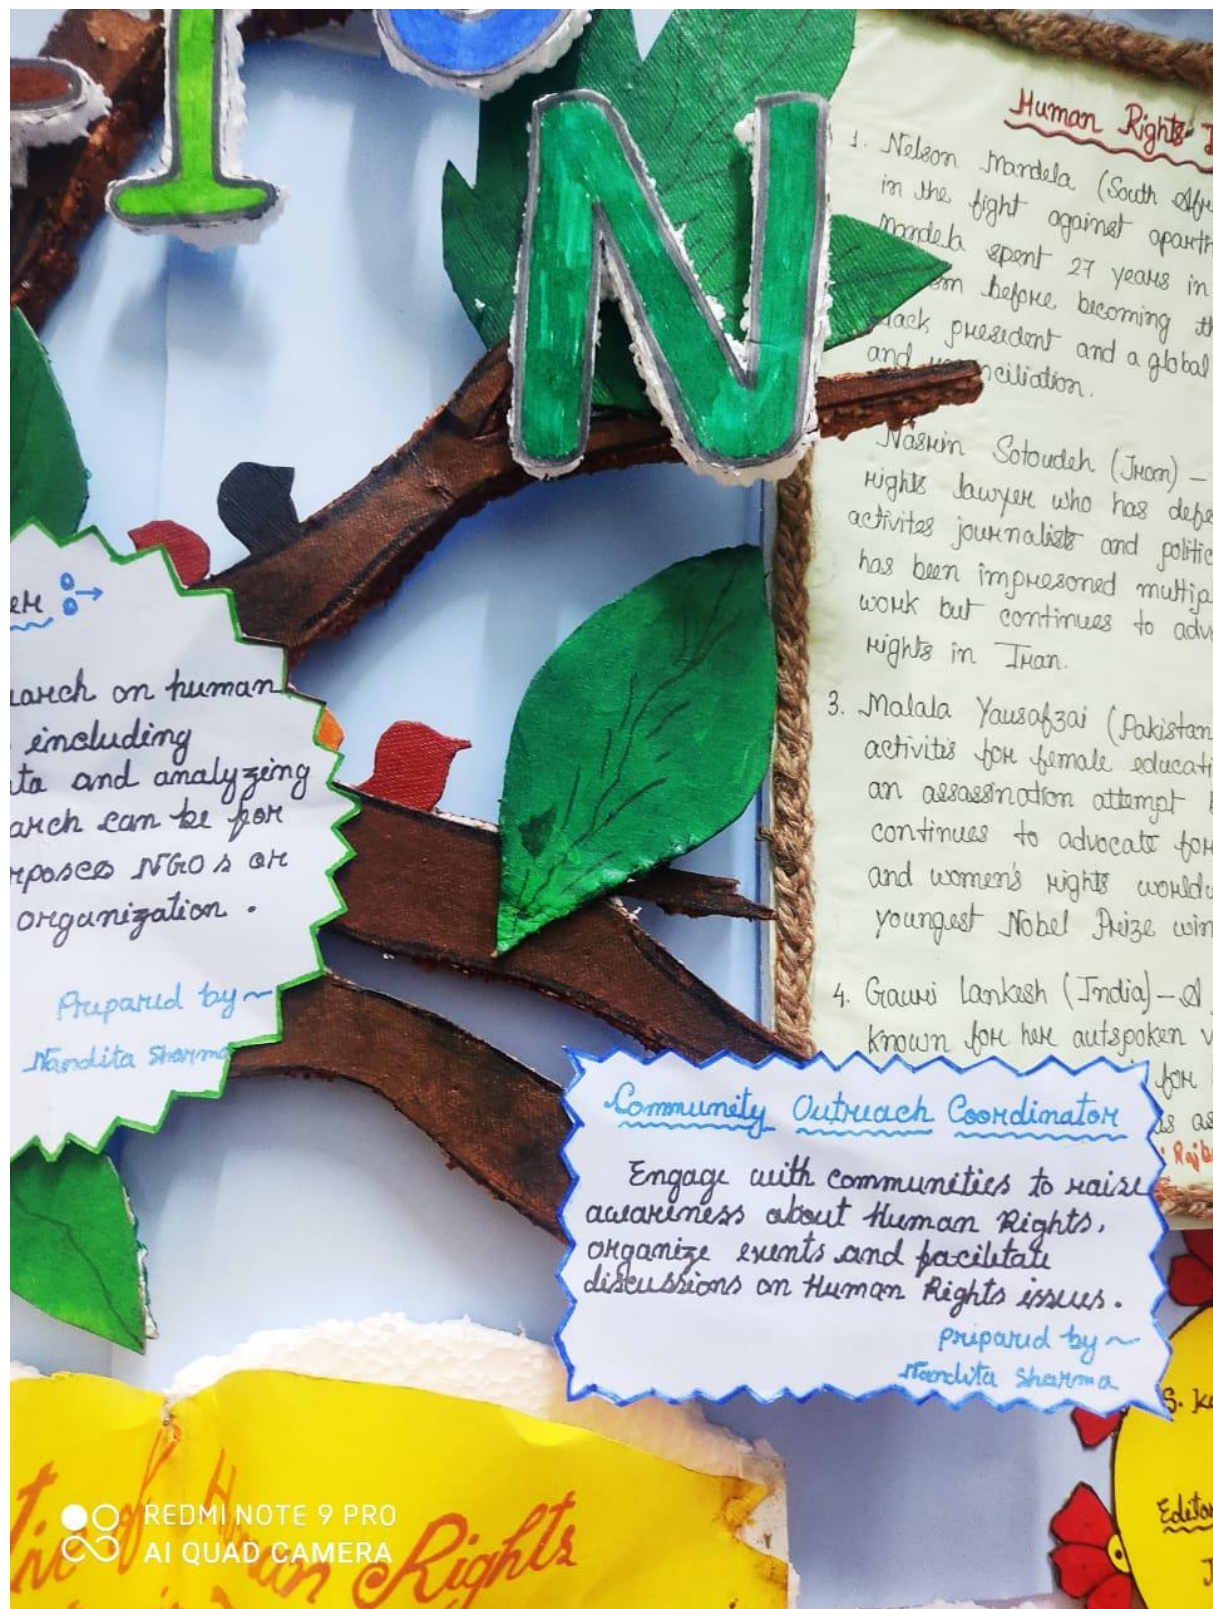 I
N
Human Rights
1. Nelson Mandela (South Afr
in the fight against aparth
Mandela spent 27 years in
before becoming th
lack president and a global
and nciliation.
Nasrin Sotoudeh (Iran) –
rights lawyer who has defe
activites journalists and politic
has been impresoned multip
work but continues to adv
rights in Iran.
3. Malala Yausafzai (Pakistan
activitis for female educati
an assassination attempt
continues to advocate for
and women's rights worldw
youngest Nobel Prize win
4. Gauri Lankesh (India) – A
known for her autspoken v
for
as as
er :→
earch on human
including
ta and analyzing
arch can be for
rposces NGO s or
organization .
Prepared by ~
Nandita Sharma
Community Outreach Coordinator
Engage with communities to raise
awareness about Human Rights,
organize events and facilitate
discussions on Human Rights issues .
prepared by ~
Nandita Sharma
tive of Human Rights
S. K
Editor
REDMI NOTE 9 PRO
AI QUAD CAMERA